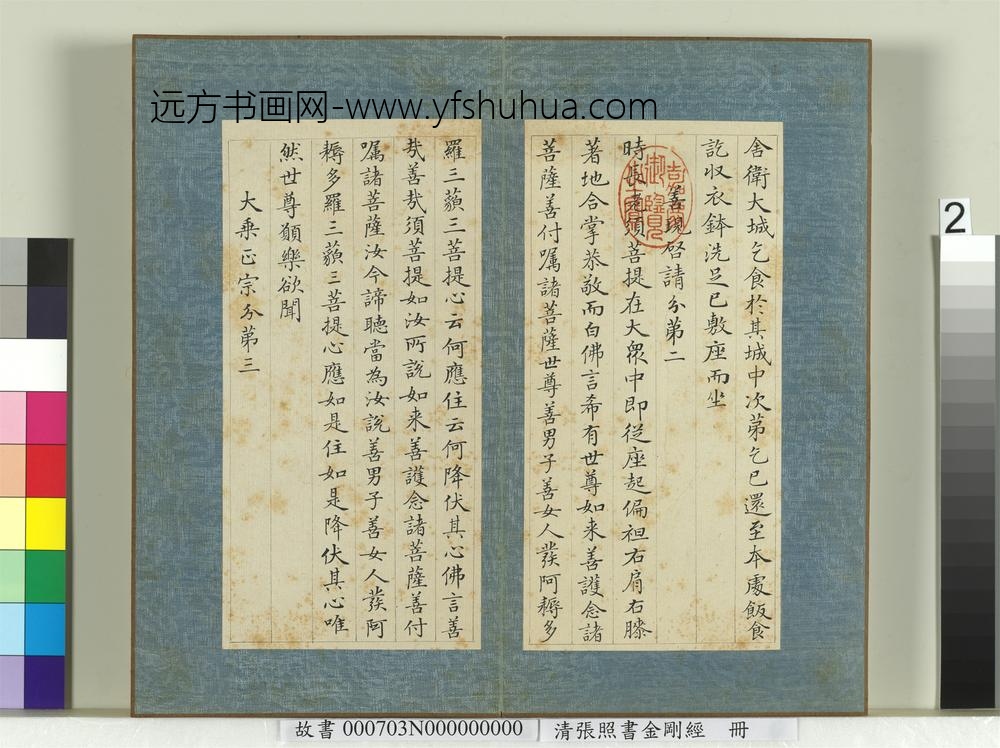 远方书画网-www.yfshuhua.com
舍衛大城乞食於其城中次第乞已還至本處飯食
訖收衣鉢洗足已敷座而坐
善現啓請分第二
時長老須菩提在大衆中即從座起偏袒右肩右膝
著地合掌恭敬而白佛言希有世尊如来善護念諸
菩薩善付嘱諸菩薩世尊善男子善女人發阿耨多
羅三藐三菩提心云何應住云何降伏其心佛言善
㢤善㢤須菩提如汝所說如来善護念諸菩薩善付
嘱諸菩薩汝今諦聽當為汝說善男子善女人發阿
耨多羅三藐三菩提心應如是住如是降伏其心唯
然世尊願樂欲聞
大乘正宗分第三
2
故書 000703N000000000 清張照書金剛經 冊